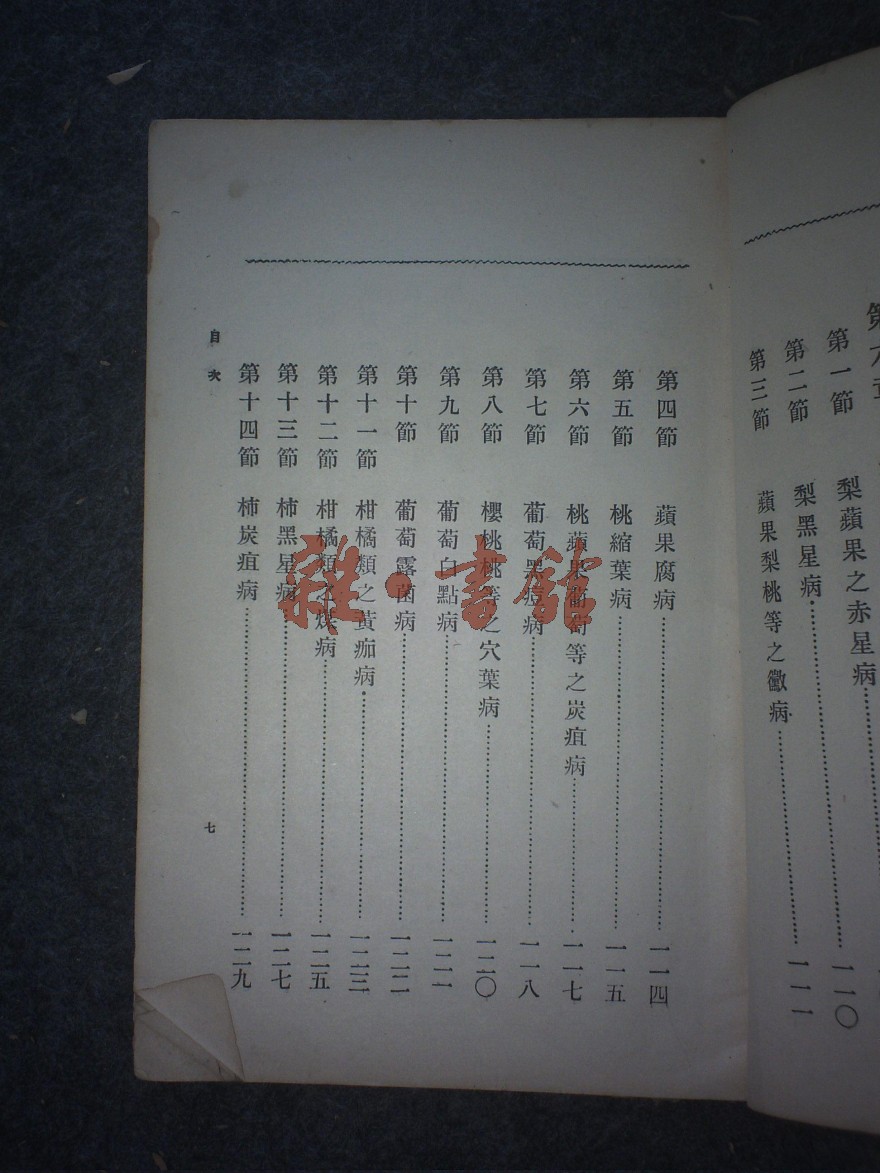 第一節 梨蘋果之赤星病
第二節 梨黑星病 一一〇
第三節 蘋果梨桃等之黴病 一一一
第四節 蘋果腐病 一一四
第五節 桃縮葉病 一一五
第六節 桃蘋果葡萄等之炭疽病 一一七
第七節 葡萄黑痘病 一一八
第八節 櫻桃桃等之穴葉病 一二〇
第九節 葡萄白點病 一二一
第十節 葡萄露菌病 一二二
第十一節 柑橘類之黃痂病 一二三
第十二節 柑橘類之煤病 一二五
第十三節 柿黑星病 一二七
第十四節 柿炭疽病 一二九
目次
七
雜·書館